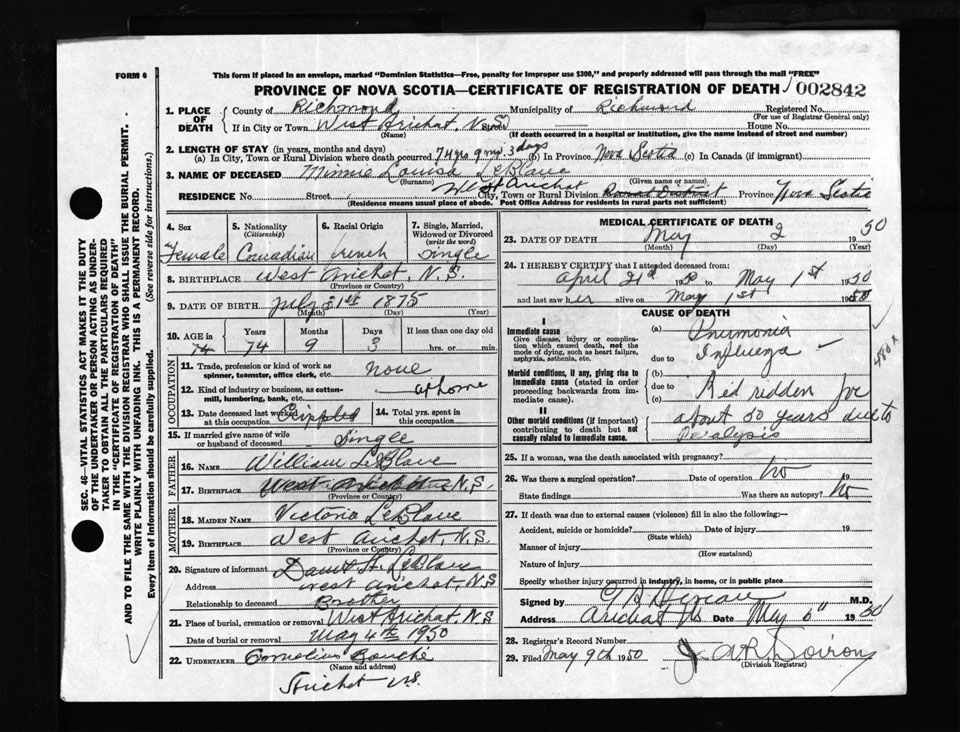 FORM 6
This form if placed in an envelope, marked "Dominion Statistics—Free, penalty for improper use $300," and properly addressed will pass through the mail "FREE"
PROVINCE OF NOVA SCOTIA—CERTIFICATE OF REGISTRATION OF DEATH 002842
1. PLACE OF DEATH
County of Richmond Municipality of Richmond Registered No.
(For use of Registrar General only)
If in City or Town West Arichat, N.S. Street House No.
(Name) (If death occurred in a hospital or institution, give the name instead of street and number)
2. LENGTH OF STAY (in years, months and days)
(a) In City, Town or Rural Division where death occurred 74 yrs 9 mo. 3 days (b) In Province Nova Scotia (c) In Canada (if immigrant)
3. NAME OF DECEASED Minnie Louisa LeBlanc
(Surname) (Given name or names)
RESIDENCE No. Street West Arichat City, Town or Rural Division Rural District Province Nova Scotia
(Residence means usual place of abode. Post Office Address for residents in rural parts not sufficient)
4. Sex
Female
5. Nationality
(Citizenship)
Canadian
6. Racial Origin
French
7. Single, Married, Widowed or Divorced
(write the word)
Single
8. BIRTHPLACE West Arichat, N.S.
(Province or Country)
9. DATE OF BIRTH July 31st 1875
(Month) (Day) (Year)
10. AGE in Years Months Days If less than one day old
74 74 9 3 hrs. or min.
OCCUPATION
11. Trade, profession or kind of work as spinner, teamster, office clerk, etc. none
12. Kind of industry or business, as cotton-mill, lumbering, bank, etc. at home
13. Date deceased last worked at this occupation Crippled
14. Total yrs. spent in this occupation
15. If married give name of wife or husband of deceased Single
FATHER
16. NAME William LeBlanc
17. BIRTHPLACE West Arichat N.S.
(Province or Country)
MOTHER
18. MAIDEN NAME Victoria LeBlanc
19. BIRTHPLACE West Arichat, N.S.
(Province or Country)
20. Signature of informant LeBlanc
Address West Arichat, N.S
Relationship to deceased Brother
21. Place of burial, cremation or removal West Arichat, N.S
Date of burial or removal May 4th 1950
22. UNDERTAKER Cornelius
(Name and address)
Arichat N.S.
MEDICAL CERTIFICATE OF DEATH
23. DATE OF DEATH May 2 1950
(Month) (Day) (Year)
24. I HEREBY CERTIFY that I attended deceased from:
April 21st 1950 to May 1st 1950
and last saw her alive on May 1st 1950
CAUSE OF DEATH
I
Immediate cause
Give disease, injury or complication which caused death, not the mode of dying, such as heart failure, asphyxia, asthenia, etc.
(a) Pnumonia
due to Influenza
480x
Morbid conditions, if any, giving rise to immediate cause (stated in order proceeding backwards from immediate cause).
(b)
due to
(c)
Bed ridden for
about 50 years due to
Paralysis
II
Other morbid conditions (if important) contributing to death but not causally related to immediate cause.
25. If a woman, was the death associated with pregnancy?
26. Was there a surgical operation? no Date of operation 19
State findings Was there an autopsy? No
27. If death was due to external causes (violence) fill in also the following:—
Accident, suicide or homicide? Date of injury 19
(State which)
Manner of injury
(How sustained)
Nature of injury
Specify whether injury occurred in industry, in home, or in public place
Signed by M.D.
Address Arichat N.S Date May 6th 1950
28. Registrar's Record Number
29. Filed May 9th 1950
(Division Registrar)
SEC. 46—VITAL STATISTICS ACT MAKES IT THE DUTY OF THE UNDERTAKER OR PERSON ACTING AS UNDERTAKER TO OBTAIN ALL THE PARTICULARS REQUIRED IN THE "CERTIFICATE OF REGISTRATION OF DEATH"
AND TO FILE THE SAME WITH THE DIVISION REGISTRAR WHO SHALL ISSUE THE BURIAL PERMIT.
WRITE PLAINLY WITH UNFADING INK. THIS IS A PERMANENT RECORD.
Every item of information should be carefully supplied. (See reverse side for instructions.)